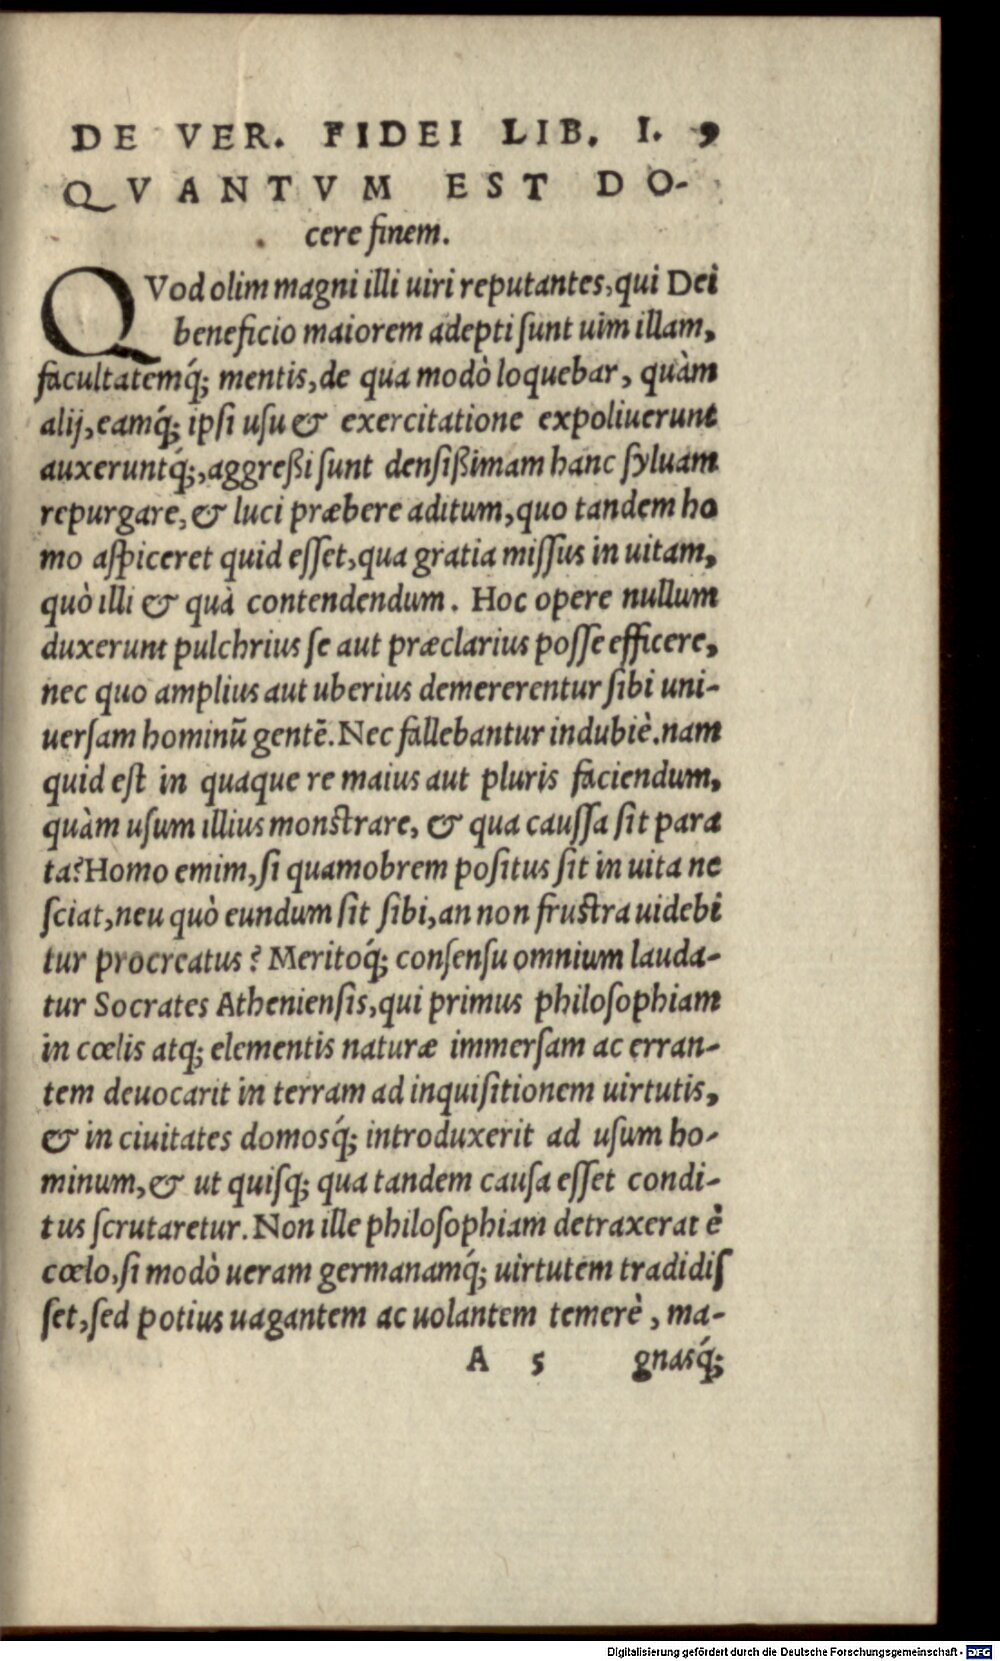 DE VER. FIDEI LIB. I. 9
QVANTVM EST DO-
cere finem.
QVod olim magni illi uiri reputantes, qui Dei
beneficio maiorem adepti sunt uim illam,
facultatemq́; mentis, de qua modò loquebar, quàm
alij, eamq́; ipsi usu & exercitatione expoliuerunt
auxeruntq́;, aggreßi sunt densißimam hanc syluam
repurgare, & luci præbere aditum, quo tandem ho
mo aspiceret quid esset, qua gratia missus in uitam,
quò illi & quà contendendum. Hoc opere nullum
duxerunt pulchrius se aut præclarius posse efficere,
nec quo amplius aut uberius demererentur sibi uni-
uersam hominū gentē. Nec fallebantur indubiè. nam
quid est in quaque re maius aut pluris faciendum,
quàm usum illius monstrare, & qua caussa sit para
ta? Homo emim, si quamobrem positus sit in uita ne
sciat, neu quò eundum sit sibi, an non frustra uidebi
tur procreatus? Meritoq́; consensu omnium lauda-
tur Socrates Atheniensis, qui primus philosophiam
in cœlis atq; elementis naturæ immersam ac erran-
tem deuocarit in terram ad inquisitionem uirtutis,
& in ciuitates domosq́; introduxerit ad usum ho-
minum, & ut quisq; qua tandem causa esset condi-
tus scrutaretur. Non ille philosophiam detraxerat è
cœlo, si modò ueram germanamq́; uirtutem tradidis
set, sed potius uagantem ac uolantem temerè, ma-
A 5 gnasq́;
Digitalisierung gefördert durch die Deutsche Forschungsgemeinschaft - DFG